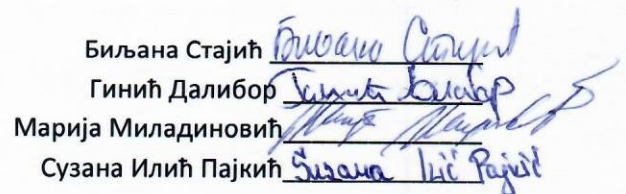 Биљана Стајић Биљана Стајић
Гинић Далибор Гинић Далибор
Марија Миладиновић
Сузана Илић Пајкић Suzana Ilić Pajkić